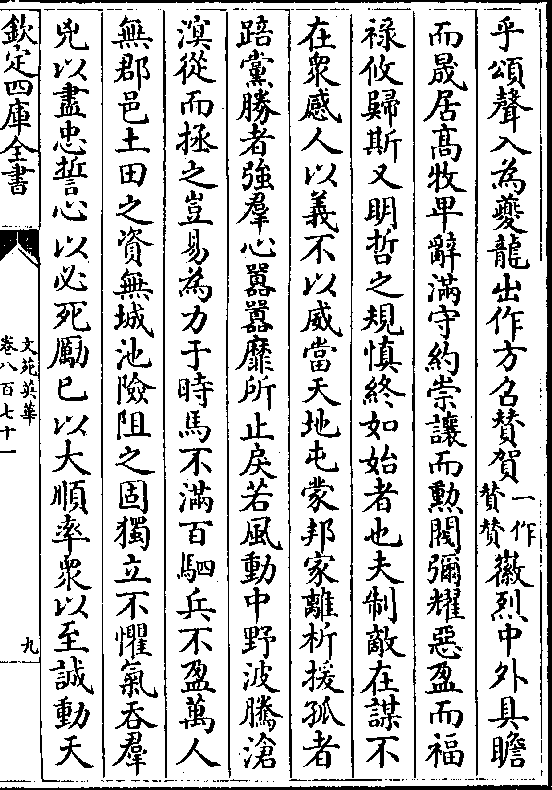 乎頌聲入為夔龍出作方召賛賀一作賛賛徽烈中外具瞻
而晟居髙牧卑辭滿守約崇讓而勲閥彌耀惡盈而福
祿攸歸斯又明哲之規慎終如始者也夫制敵在謀不
在衆感人以義不以威當天地屯蒙邦家離析援孤者
踣黨勝者強羣心囂囂靡所止戾若風動中野波騰滄
溟從而拯之豈易為力于時馬不滿百駟兵不盈萬人
無郡邑土田之資無城池險阻之固獨立不懼氣吞羣
兇以盡忠誓心以必死勵已以大順率衆以至誠動天
欽定四庫全書
文苑英華
卷八百七十一
九